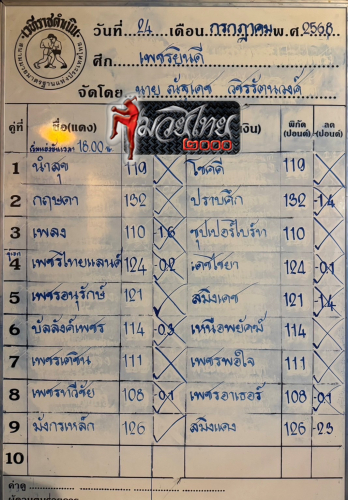 เวทีราชดำเนิน
วันที่ 24 เดือน กรกฎาคม พ.ศ. 2568
ศึก เพชรยินดี
จัดโดย นาย ณัฐเดช วชิรรัตนวงศ์
มวยไทย 2000
คู่ที่ ชื่อ(แดง) เงิน) พิกัด (ปอนด์) ลด (ปอนด์)
เวลา 18.00 น
1 นำสุข 119 โชคดี 119
2 กฤษดา 132 ปราบศึก 132 -1.4
3 เพลง 110 -1.6 ซุปเปอร์ไบร์ท 110
คู่เอก
4 เพชรไทยแลนด์ 124 -0.2 เดชไชยา 124 -0.1
5 เพชรอนุรักษ์ 121 สมิงเดช 121 -1.4
6 บัลลังค์เพชร 114 -0.3 เหนือพยัคฆ์ 114
7 เพชรเตชิน 111 เพชรพอใจ 111
8 เพชรทวีชัย 108 -0.1 เพชรอาเธอร์ 108 -0.1
9 มังกรเหล็ก 126 สมิงแดง 126 -2.3
10
ค่าดู